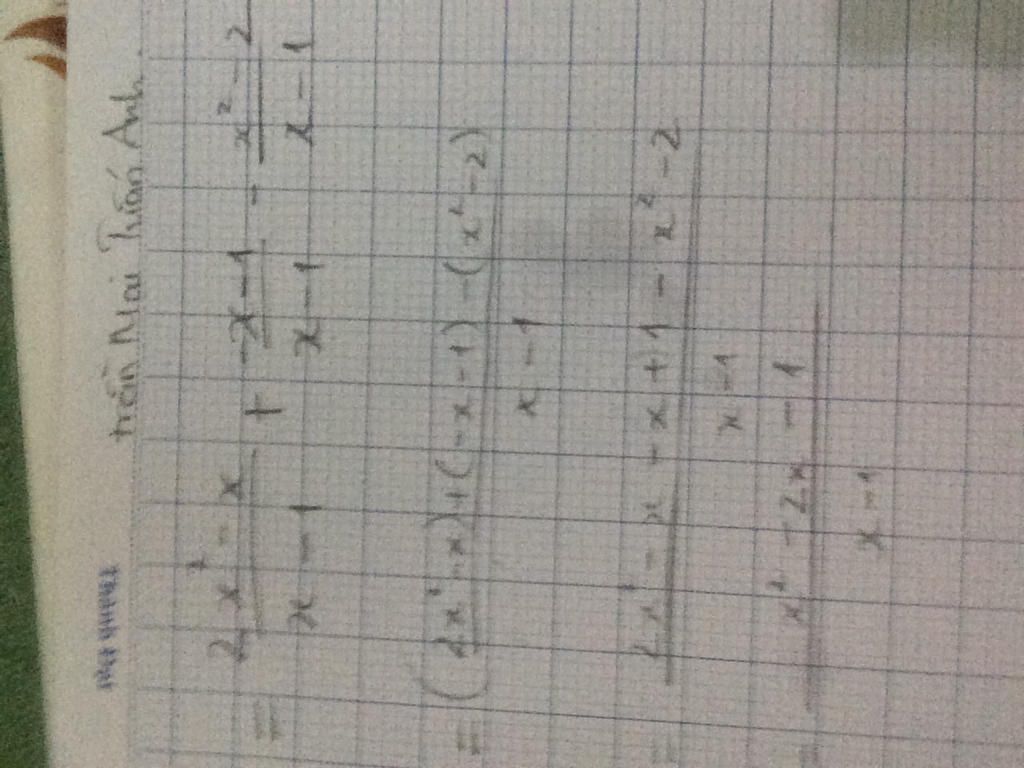 trần Mai Trấn Anh
= \frac{2x^2 - x}{x - 1} + \frac{-x - 1}{x - 1} - \frac{x^2 - 2}{x - 1}
= \frac{(2x^2 - x) + (-x - 1) - (x^2 - 2)}{x - 1}
= \frac{2x^2 - x - x + 1 - x^2 - 2}{x - 1}
= \frac{x^2 - 2x - 1}{x - 1}